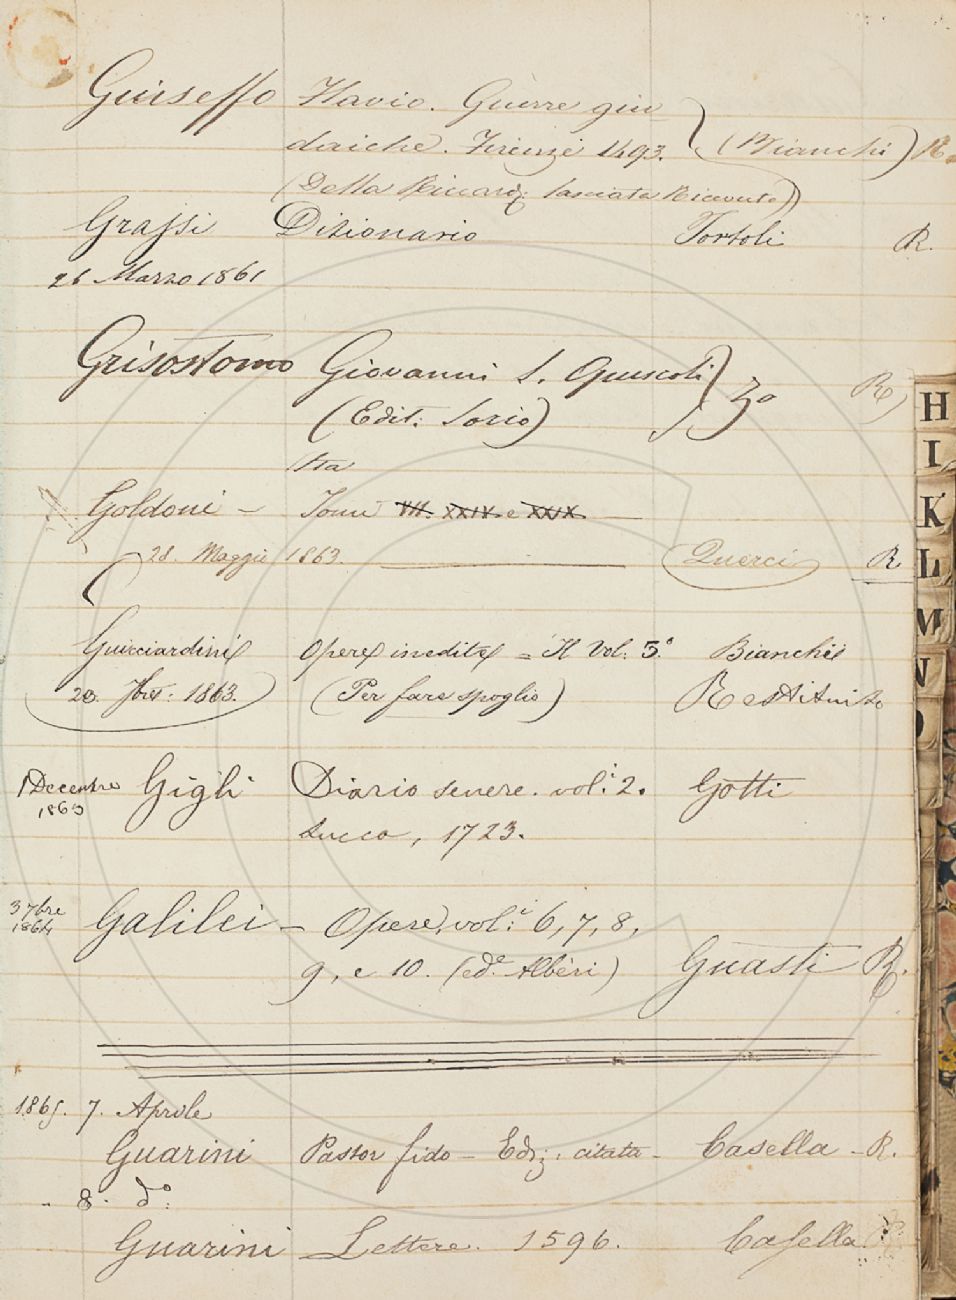 Giuseffo Flavio. Guerre giu
daiche. Firenze 1493. (Bianchi) R.
(Della Riccard: lasciata Ricevuta)
Grassi Dizionario Tortoli R.
26 Marzo 1861
Grisostomo Giovanni S. Opuscoli
(Edit: Sorio) R
Goldoni – Tomi VII. XXIV. e XXIX.
28. Maggio 1863. Querci R.
Guicciardini Opere inedite = Il Vol: 3.º Bianchi
20. 1863. (Per fare spoglio) Restituito
1 Decembre Gigli Diario senese. vol.i 2. Gotti
1863 Lucca, 1723.
3 7bre Galilei – Opere, vol.i 6, 7, 8,
1864 9, e 10. (ed.e Albèri) Guasti R.
1865. 7. Aprile
Guarini Pastor fido – Ediz: citata – Casella – R.
„ 8. dº:
Guarini Lettere. 1596. Casella
H
I
K
L
M
N
O